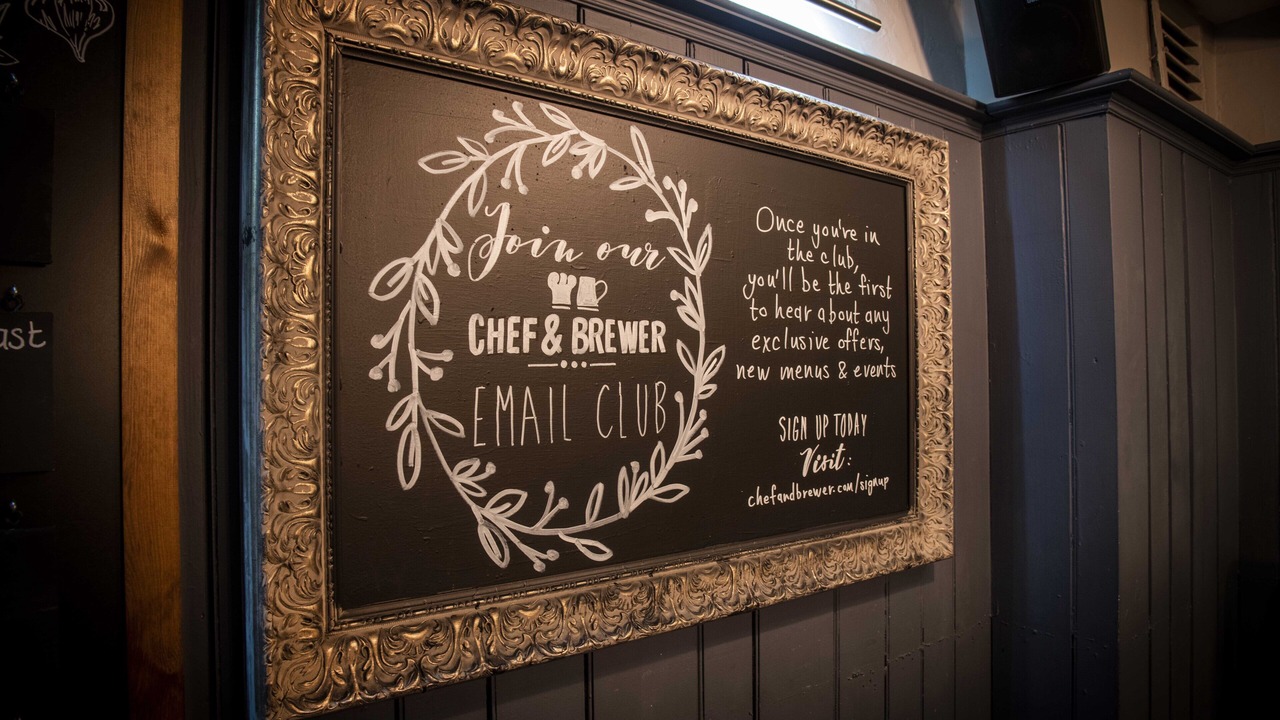 Join our
CHEF & BREWER
EMAIL CLUB
Once you're in
the club,
you'll be the first
to hear about any
exclusive offers,
new menus & events
SIGN UP TODAY
Visit:
chefandbrewer.com/signup
ast